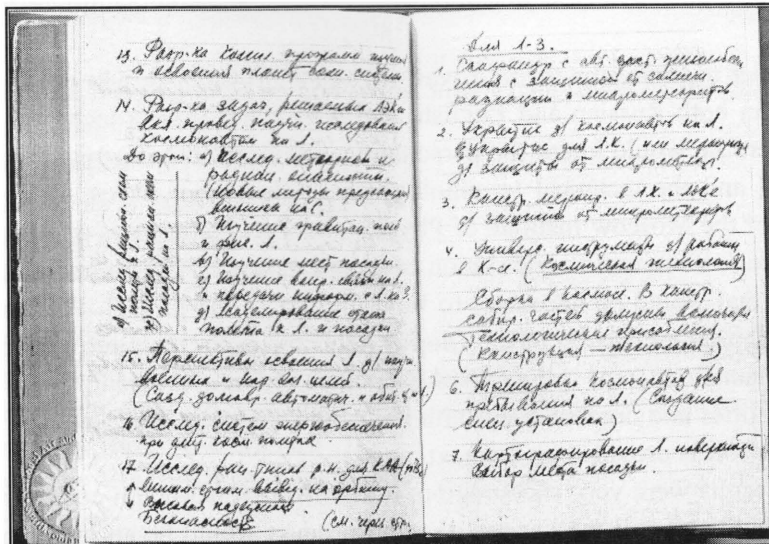 13. Разр-ка косм. программ изучен.
и освоения планет солн. системы
14. Разр-ка задач, решаемых ЛЭК и
вкл. провед. научн. исследования
космонавтом на Л.
До этого: а) Исслед. метеорной и
радиац. опасности.
(новые методы предсказан.
вспышек на С.
б) Изучение гравитац. поля
и фиг. Л.
в) Изучение мест посадки.
г) Изучение вопр. связи на Л.
и передачи информ. с Л. на З.
д) Моделирование этапа
полета к Л. и посадки
полета к Л.
посадки на Л.
15. Перспективы освоения Л. д/ научн.
военных и нар. хоз. целей.
(Созд. долговр. автоматич. и обит. на Л.
16. Исслед. систем энергообеспечения
при длит. косм. полетах.
17. Исслед. разл. типов р.н. для КЛА
вывед. на орбиту.
Высокая надежность
Безопасность (см. черн. стр.
Для Л-3.
1. Скафандр с авт. сист. жизнеобеспе
чения с защитой от солнечн.
радиации и микрометеоритов
2. Укрытие д/ космонавтов на Л.
Укрытие для Л.К. (или мероприят.
д/ защиты от микрометеор.
3. Констр. меропр. в Л.К. и ЛЭКе
д/ защиты от микрометеоритов
4. Универс. инструменты д/ работы
в К-се. (Космическая технология)
Сборка в космосе. В констр.
собир. частей должны включать
технологические приспособления.
(Конструкция — технология.)
6. Тренировка космонавтов для
пребывания на Л. (Создание
спец. установок.)
7. Картографирование Л. поверхности
Выбор места посадки.